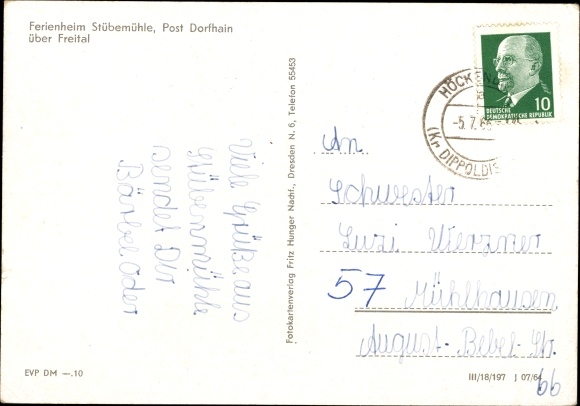 Ferienheim Stübemühle, Post Dorfhain
über Freital
Viele Grüße aus
Stübenmühle
sendet Dir
Bärbel Oder
Fotokartenverlag Fritz Hunger Nachf., Dresden N. 6, Telefon 55453
DEUTSCHE
DEMOKRATISCHE REPUBLIK
10
HÖCKEND
-5.7.66
(Kr DIPPOLDIS
An
Schwester
Luzi
57 Mühlhausen
August-Bebel-Str.
66
EVP DM —.10
III/18/197 J 07/64